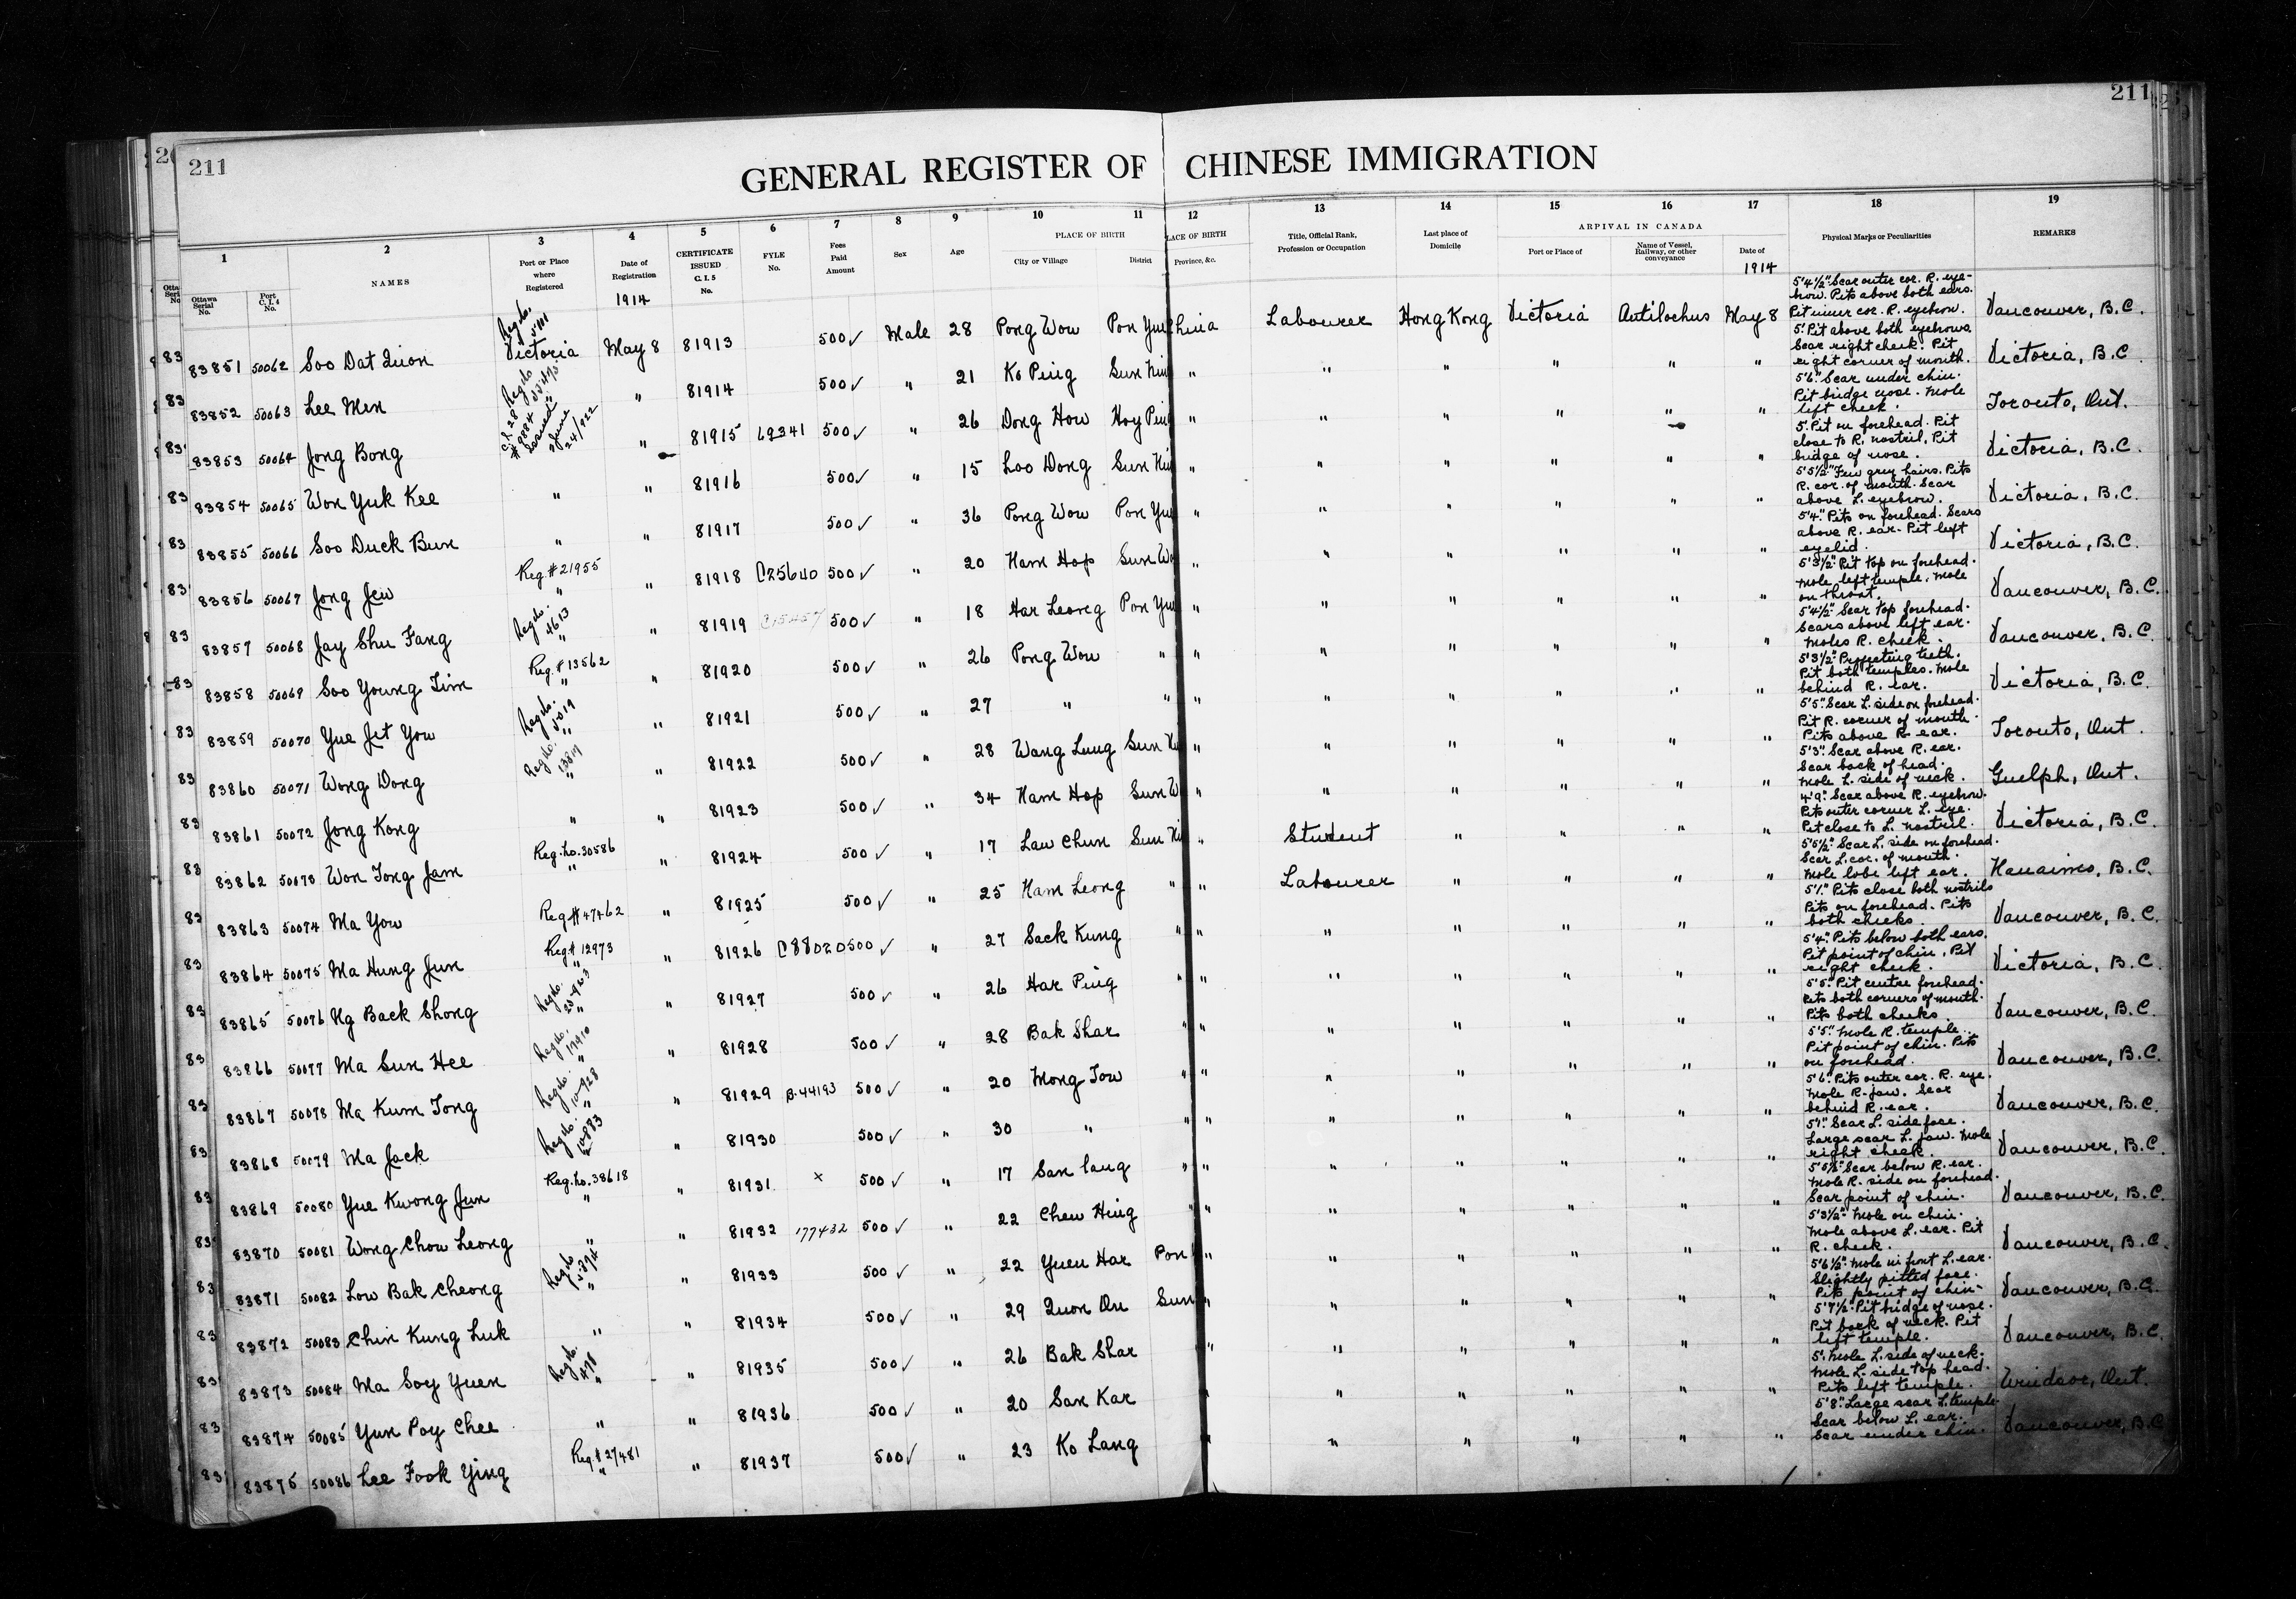 211
211
GENERAL REGISTER OF CHINESE IMMIGRATION
1 2 3 4 5 6 7 8 9 10 11 12 13 14 15 16 17 18 19
PLACE OF BIRTH PLACE OF BIRTH ARRIVAL IN CANADA
Ottawa Serial No. Port C.I.4 No. NAMES Port or Place where Registered Date of Registration CERTIFICATE ISSUED C.I.5 No. FYLE No. Fees Paid Amount Sex Age City or Village District Province, &c. Title, Official Rank, Profession or Occupation Last place of Domicile Port or Place of Name of Vessel, Railway, or other conveyance Date of Physical Marks or Peculiarities REMARKS
1914 1914
83851 50062 Soo Dat Quon Reg. No. 5101 Victoria May 8 81913 500 ✓ Male 28 Pong Wow Pon Yu China Labourer Hong Kong Victoria Antilochus May 8 5'4½". Scar outer cor. R. eyebrow. Pits above both ears. Pit inner cor. R. eyebrow. Vancouver, B.C.
83852 50063 Lee Men Reg No " " 81914 500 ✓ " 21 Ko Ping Sun Nin " " " " " " 5'. Pit above both eyebrows Scar right cheek. Pit right corner of mouth. Victoria, B.C.
83853 50064 Jong Bong C.I. 28 # 9884 Issued June 24/922 " 81915 69341 500 ✓ " 26 Dong How Hoy Pin " " " " " " 5'6". Scar under chin. Pit bridge nose. Mole left cheek. Toronto, Ont.
83854 50065 Won Yuk Kee " " 81916 500 ✓ " 15 Loo Dong Sun Nin " " " " " " 5'. Pit on forehead. Pit close to R. nostril, Pit bridge of nose. Victoria, B.C.
83855 50066 Soo Duck Bun " " 81917 500 ✓ " 36 Pong Wow Pon Yu " " " " " " 5'5½". Few grey hairs. Pits R. cor. of mouth. Scar above L. eyebrow. Victoria, B.C.
83856 50067 Jong Jew Reg # 21955 " " 81918 C25640 500 ✓ " 20 Ham Hop Sun W " " " " " " 5'4". Pits on forehead. Scars above R. ear. Pit left eyelid. Victoria, B.C.
83857 50068 Jay Shu Fang Reg No. 4613 " " 81919 500 ✓ " 18 Har Leong Pon Yu " " " " " " 5'3½". Pit top on forehead. Mole left temple, Mole on throat. Vancouver, B.C.
83858 50069 Soo Young Tim Reg. # 13562 " " 81920 500 ✓ " 26 Pong Wow " " " " " " " 5'4½". Scar top forehead. Scars above left ear. Moles R. cheek. Vancouver, B.C.
83859 50070 Yue Jit You Reg No. 5019 " " 81921 500 ✓ " 27 " " " " " " " " 5'3½". Projecting teeth. Pit both temples. Mole behind R. ear. Victoria, B.C.
83860 50071 Wong Dong Reg No. " " 81922 500 ✓ " 28 Wang Lung Sun " " " " " " 5'5". Scar L. side on forehead. Pit R. corner of mouth. Pits above R. ear. Toronto, Ont.
83861 50072 Jong Kong " " 81923 500 ✓ " 34 Ham Hop Sun W " " " " " " 5'3". Scar above R. ear. Scar back of head. Mole L. side of neck. Guelph, Ont.
83862 50073 Won Tong Jam Reg. No. 30586 " " 81924 500 ✓ " 17 Law Chun Sun Ni " Student " " " " 4'9". Scar above R. eyebrow. Pits outer corner L. eye. Pit close to L. nostril. Victoria, B.C.
83863 50074 Ma You Reg # 47462 " 81925 500 ✓ " 25 Ham Leong " " Labourer " " " " 5'5½". Scar L. side on forehead. Scar L. cor. of mouth. Mole lobe left ear. Nanaimo, B.C.
83864 50075 Ma Hung Jun Reg # 12973 " " 81926 C88020 500 ✓ " 27 Sack Kung " " " " " " " 5'1". Pits close both nostrils Pits on forehead. Pits both cheeks. Vancouver, B.C.
83865 50076 Ng Back Shong Reg No. " " 81927 500 ✓ " 26 Har Ping " " " " " " " 5'4". Pits below both ears. Pit point of chin, Pit right cheek. Victoria, B.C.
83866 50077 Ma Sun Hee Reg No. " " 81928 500 ✓ " 28 Bak Shar " " " " " " " 5'5". Pit centre forehead. Pits both corners of mouth. Pits both cheeks. Vancouver, B.C.
83867 50078 Ma Kum Tong Reg No. 10928 " " 81929 B.44193 500 ✓ " 20 Mong Tow " " " " " " " 5'5". Mole R. temple. Pit point of chin. Pits on forehead. Vancouver, B.C.
83868 50079 Ma Jack Reg No. 10883 " " 81930 500 ✓ " 30 " " " " " " " " 5'6". Pits outer cor. R. eye. Mole R. jaw. Scar behind R. ear. Vancouver, B.C.
83869 50080 Yue Kwong Jun Reg. No. 38618 " " 81931 × 500 ✓ " 17 San Lang " " " " " " " 5'1". Scar L. side face. Large scar L. jaw. Mole right cheek. Vancouver, B.C.
83870 50081 Wong Chow Leong " " 81932 177432 500 ✓ " 22 Chew Hing " " " " " " " 5'5½". Scar below R. ear. Mole R. side on forehead. Scar point of chin. Vancouver, B.C.
83871 50082 Low Bak Cheong Reg No 5894 " " 81933 500 ✓ " 22 Yuen Har Pon " " " " " " 5'3½". Mole on chin. Mole above L. ear. Pit R. cheek. Vancouver, B.C.
83872 50083 Chin Kung Luk " " 81934 500 ✓ " 29 Quon On Sun " " " " " " 5'6½". Mole in front L. ear. Slightly pitted face. Pits point of chin. Vancouver, B.C.
83873 50084 Ma Soy Yuen Reg No. " " 81935 500 ✓ " 26 Bak Shar " " " " " " 5'7½". Pit bridge of nose. Pit back of neck. Pit left temple. Vancouver, B.C.
83874 50085 Yun Poy Chee " " 81936 500 ✓ " 20 San Kar " " " " " " 5'. Mole L. side of neck. Mole L. side top head. Pits left temple. Windsor, Ont.
83875 50086 Lee Fook Ying Reg. # 27481 " " 81937 500 ✓ " 23 Ko Lang " " " " " " 5'8". Large scar L. temple. Scar below L. ear. Scar under chin. Vancouver, B.C.